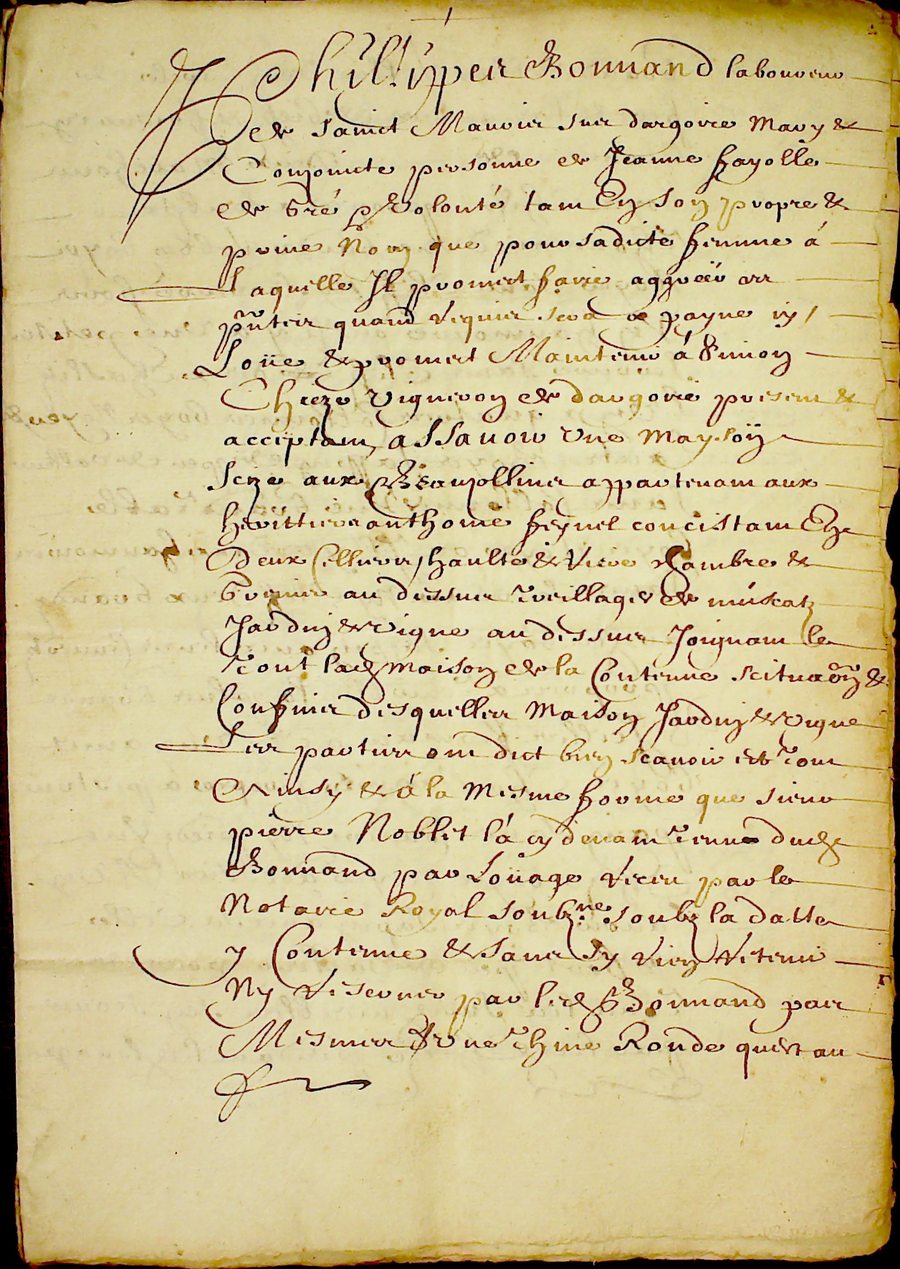 Phillipes Bonnand laboureur
de Sainct Maurice sur dargoire mary &
Conjoincte personne de Jeanne fayolle
de gré & volonté tant En son propre &
privé Nom que pour sadicte femme á
laquelle Il promect faire aggreer
quand requis sera
Loüe & promect Maintenir á Simon
Chieze vigneron de dargoire present &
acceptant, assavoir une maysoÿ
Size aux Beaujollines appartenant aux
herittiers anthoine feynel concistant En
Deux Celliers, haulte & chambre &
Grenier au dessus treillages de muscatz
Jardin & vigne au dessus Joignant le
tout lad maison de la Contenue scituaon &
Confines desquelles Maison Jardin & vigne
les parties ont dict bien scavoir & tout
Ainsy & á la mesme forme que sieur
pierre Noblet l'á cy devant tenue dud
Bonnand par Loüage receu par le
Notaire Royal soubzne soubz la datte
y Contenue & sans sy rien retenir
Ny reserver par led Bonnand pas
Mesmes Une thine Ronde quest au